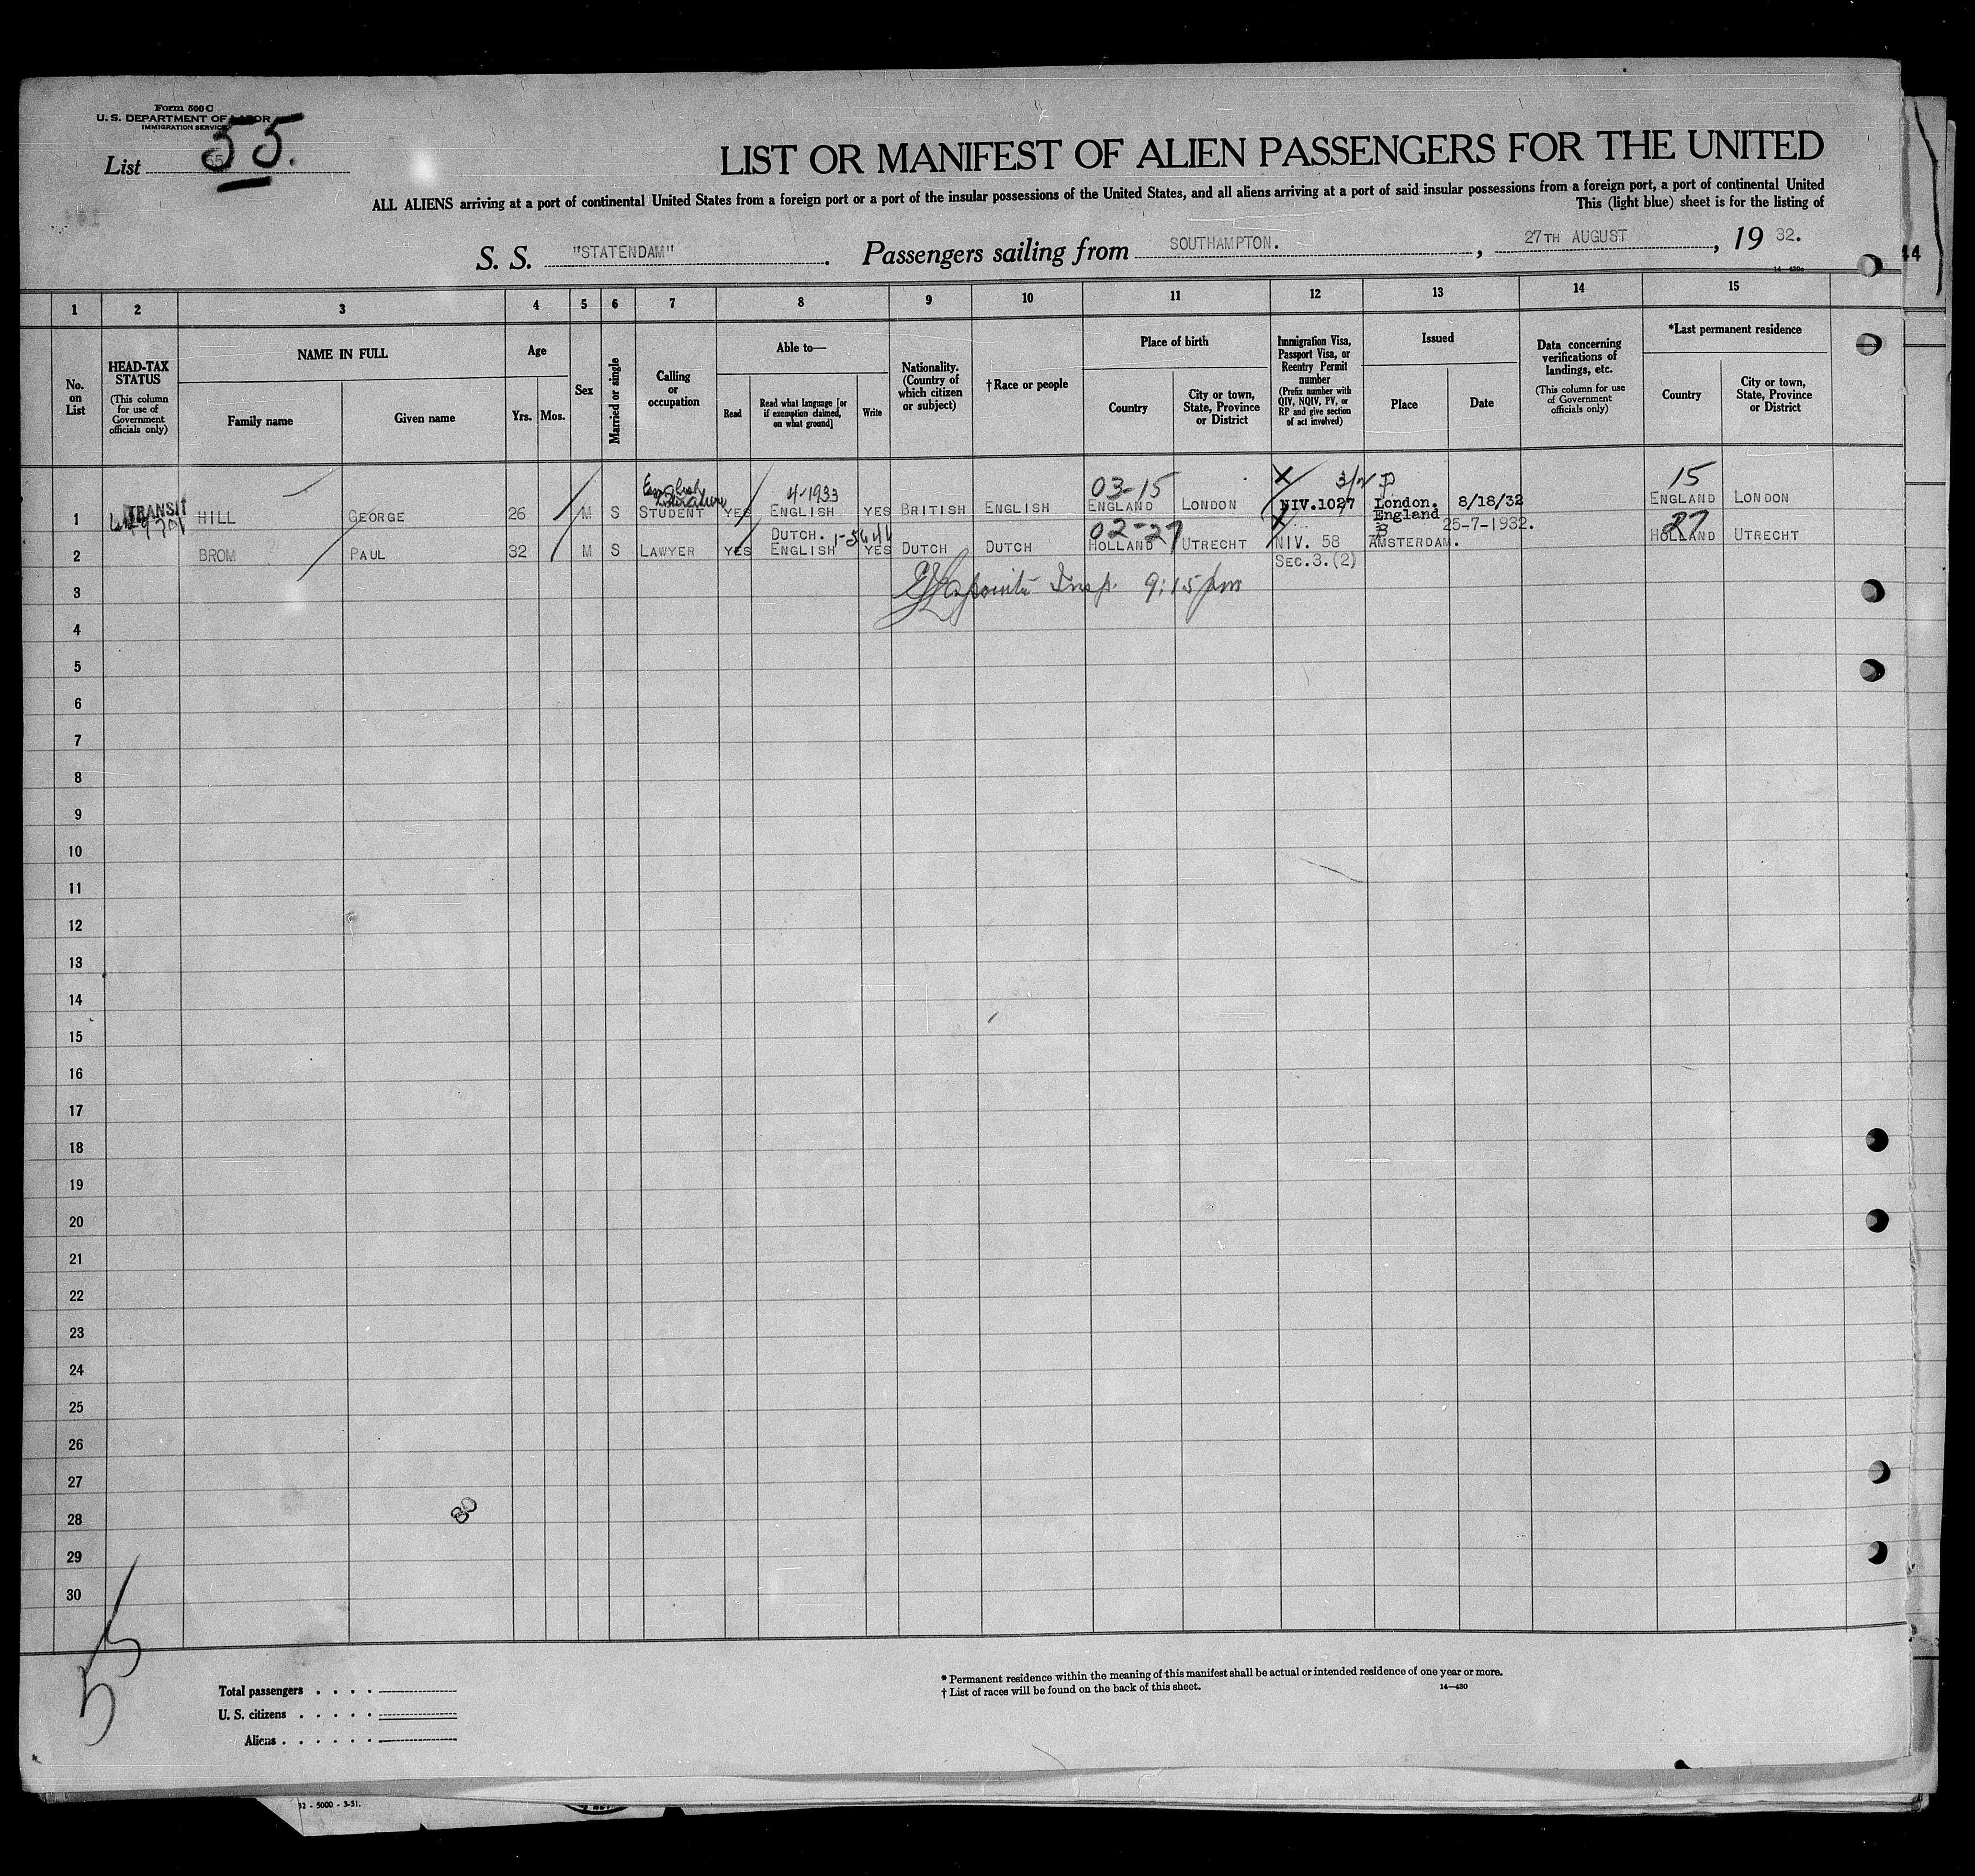 Form 500 C
U. S. DEPARTMENT OF LABOR
IMMIGRATION SERVICE
List 55.
LIST OR MANIFEST OF ALIEN PASSENGERS FOR THE UNITED
ALL ALIENS arriving at a port of continental United States from a foreign port or a port of the insular possessions of the United States, and all aliens arriving at a port of said insular possessions from a foreign port, a port of continental United
This (light blue) sheet is for the listing of
S. S. "STATENDAM". Passengers sailing from SOUTHAMPTON., 27TH AUGUST, 19 32.
44
1 2 3 4 5 6 7 8 9 10 11 12 13 14 15
No. on List
HEAD-TAX STATUS
(This column for use of Government officials only)
NAME IN FULL
Family name
Given name
Age
Yrs. Mos.
Sex
Married or single
Calling or occupation
Able to—
Read
Read what language [or if exemption claimed, on what ground]
Write
Nationality. (Country of which citizen or subject)
† Race or people
Place of birth
Country
City or town, State, Province or District
Immigration Visa, Passport Visa, or Reentry Permit number
(Prefix number with QIV, NQIV, PV, or RP and give section of act involved)
Issued
Place
Date
Data concerning verifications of landings, etc.
(This column for use of Government officials only)
*Last permanent residence
Country
City or town, State, Province or District
English 4-1933 03-15 X 15
1 TRANSIT HILL GEORGE 26 M S STUDENT YES ENGLISH YES BRITISH ENGLISH ENGLAND LONDON NIV.1027 London. England 8/18/32 ENGLAND LONDON
02-27 X 27
2 BROM PAUL 32 M S LAWYER YES DUTCH. ENGLISH YES DUTCH DUTCH HOLLAND UTRECHT NIV. 58 SEC.3.(2) AMSTERDAM. 25-7-1932. HOLLAND UTRECHT
Insp. 9:15 pm
3
4
5
6
7
8
9
10
11
12
13
14
15
16
17
18
19
20
21
22
23
24
25
26
27
28
29
30
80
55
Total passengers
U. S. citizens
Aliens
* Permanent residence within the meaning of this manifest shall be actual or intended residence of one year or more.
† List of races will be found on the back of this sheet.
14—430
32 - 5000 - 3-31.